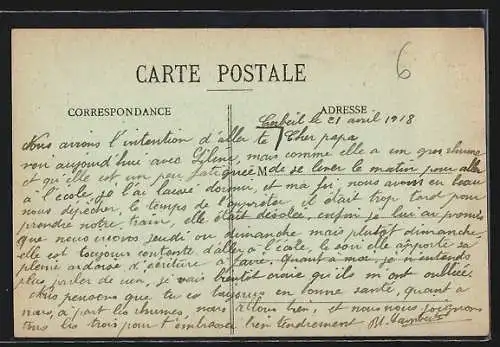 CARTE POSTALE
6
CORRESPONDANCE
ADRESSE
Corbeil le 21 avril 1918
Cher papa
Nous avions l'intention d'aller te
voir aujourd'hui avec mais comme elle a un gros rhume
et qu'elle est un peu fatiguée de se lever le matin pour aller
à l'école, je l'ai laissé dormir, et ma foi, nous avons eu beau
nous dépêcher, le temps de l'apprêter, il était trop tard pour
prendre notre train, elle était désolée, enfin je lui ai promis
que nous irions jeudi ou dimanche mais plutôt dimanche,
elle est toujours contente d'aller à l'école, le soir elle apporte sa
pleine ardoise d'écriture à faire. Quant à moi, je n'entends
plus parler de rien, je vais bientôt croire qu'ils m'ont oubliée
Nous pensons que tu es toujours en bonne santé, quant à
nous, à part les rhumes nous allons bien, et nous nous joignons
tous les trois pour t'embrasser bien tendrement